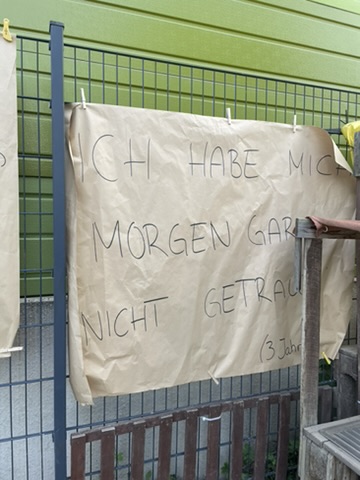 ICH HABE MICH
MORGEN GAR
NICHT GETRAU
(3 Jahr